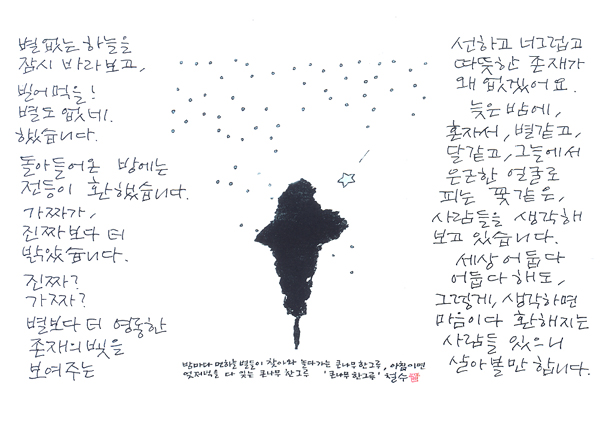 별 없는 하늘을
잠시 바라보고,
빌어먹을!
별도 없네.
했습니다.
돌아들어온 방에는
전등이 환했습니다.
가짜가,
진짜보다 더
밝았습니다.
진짜?
가짜?
별보다 더 영롱한
존재의 빛을
보여주는
선하고 너그럽고
따뜻한 존재가
왜 없겠어요.
늦은 밤에,
혼자서, 별같고,
달같고, 그늘에서
은근한 얼굴로
피는 꽃같은,
사람들을 생각해
보고 있습니다.
세상 어둡다
어둡다 해도,
그렇게, 생각하면
마음이 다 환해지는
사람들 있으니
살아볼만 합니다.
밤마다 먼하늘 별들이 찾아와 놀다가는 큰나무 한그루, 아침이면
엊저녁을 다 잊는 큰나무 한그루 '큰나무 한그루' 철수